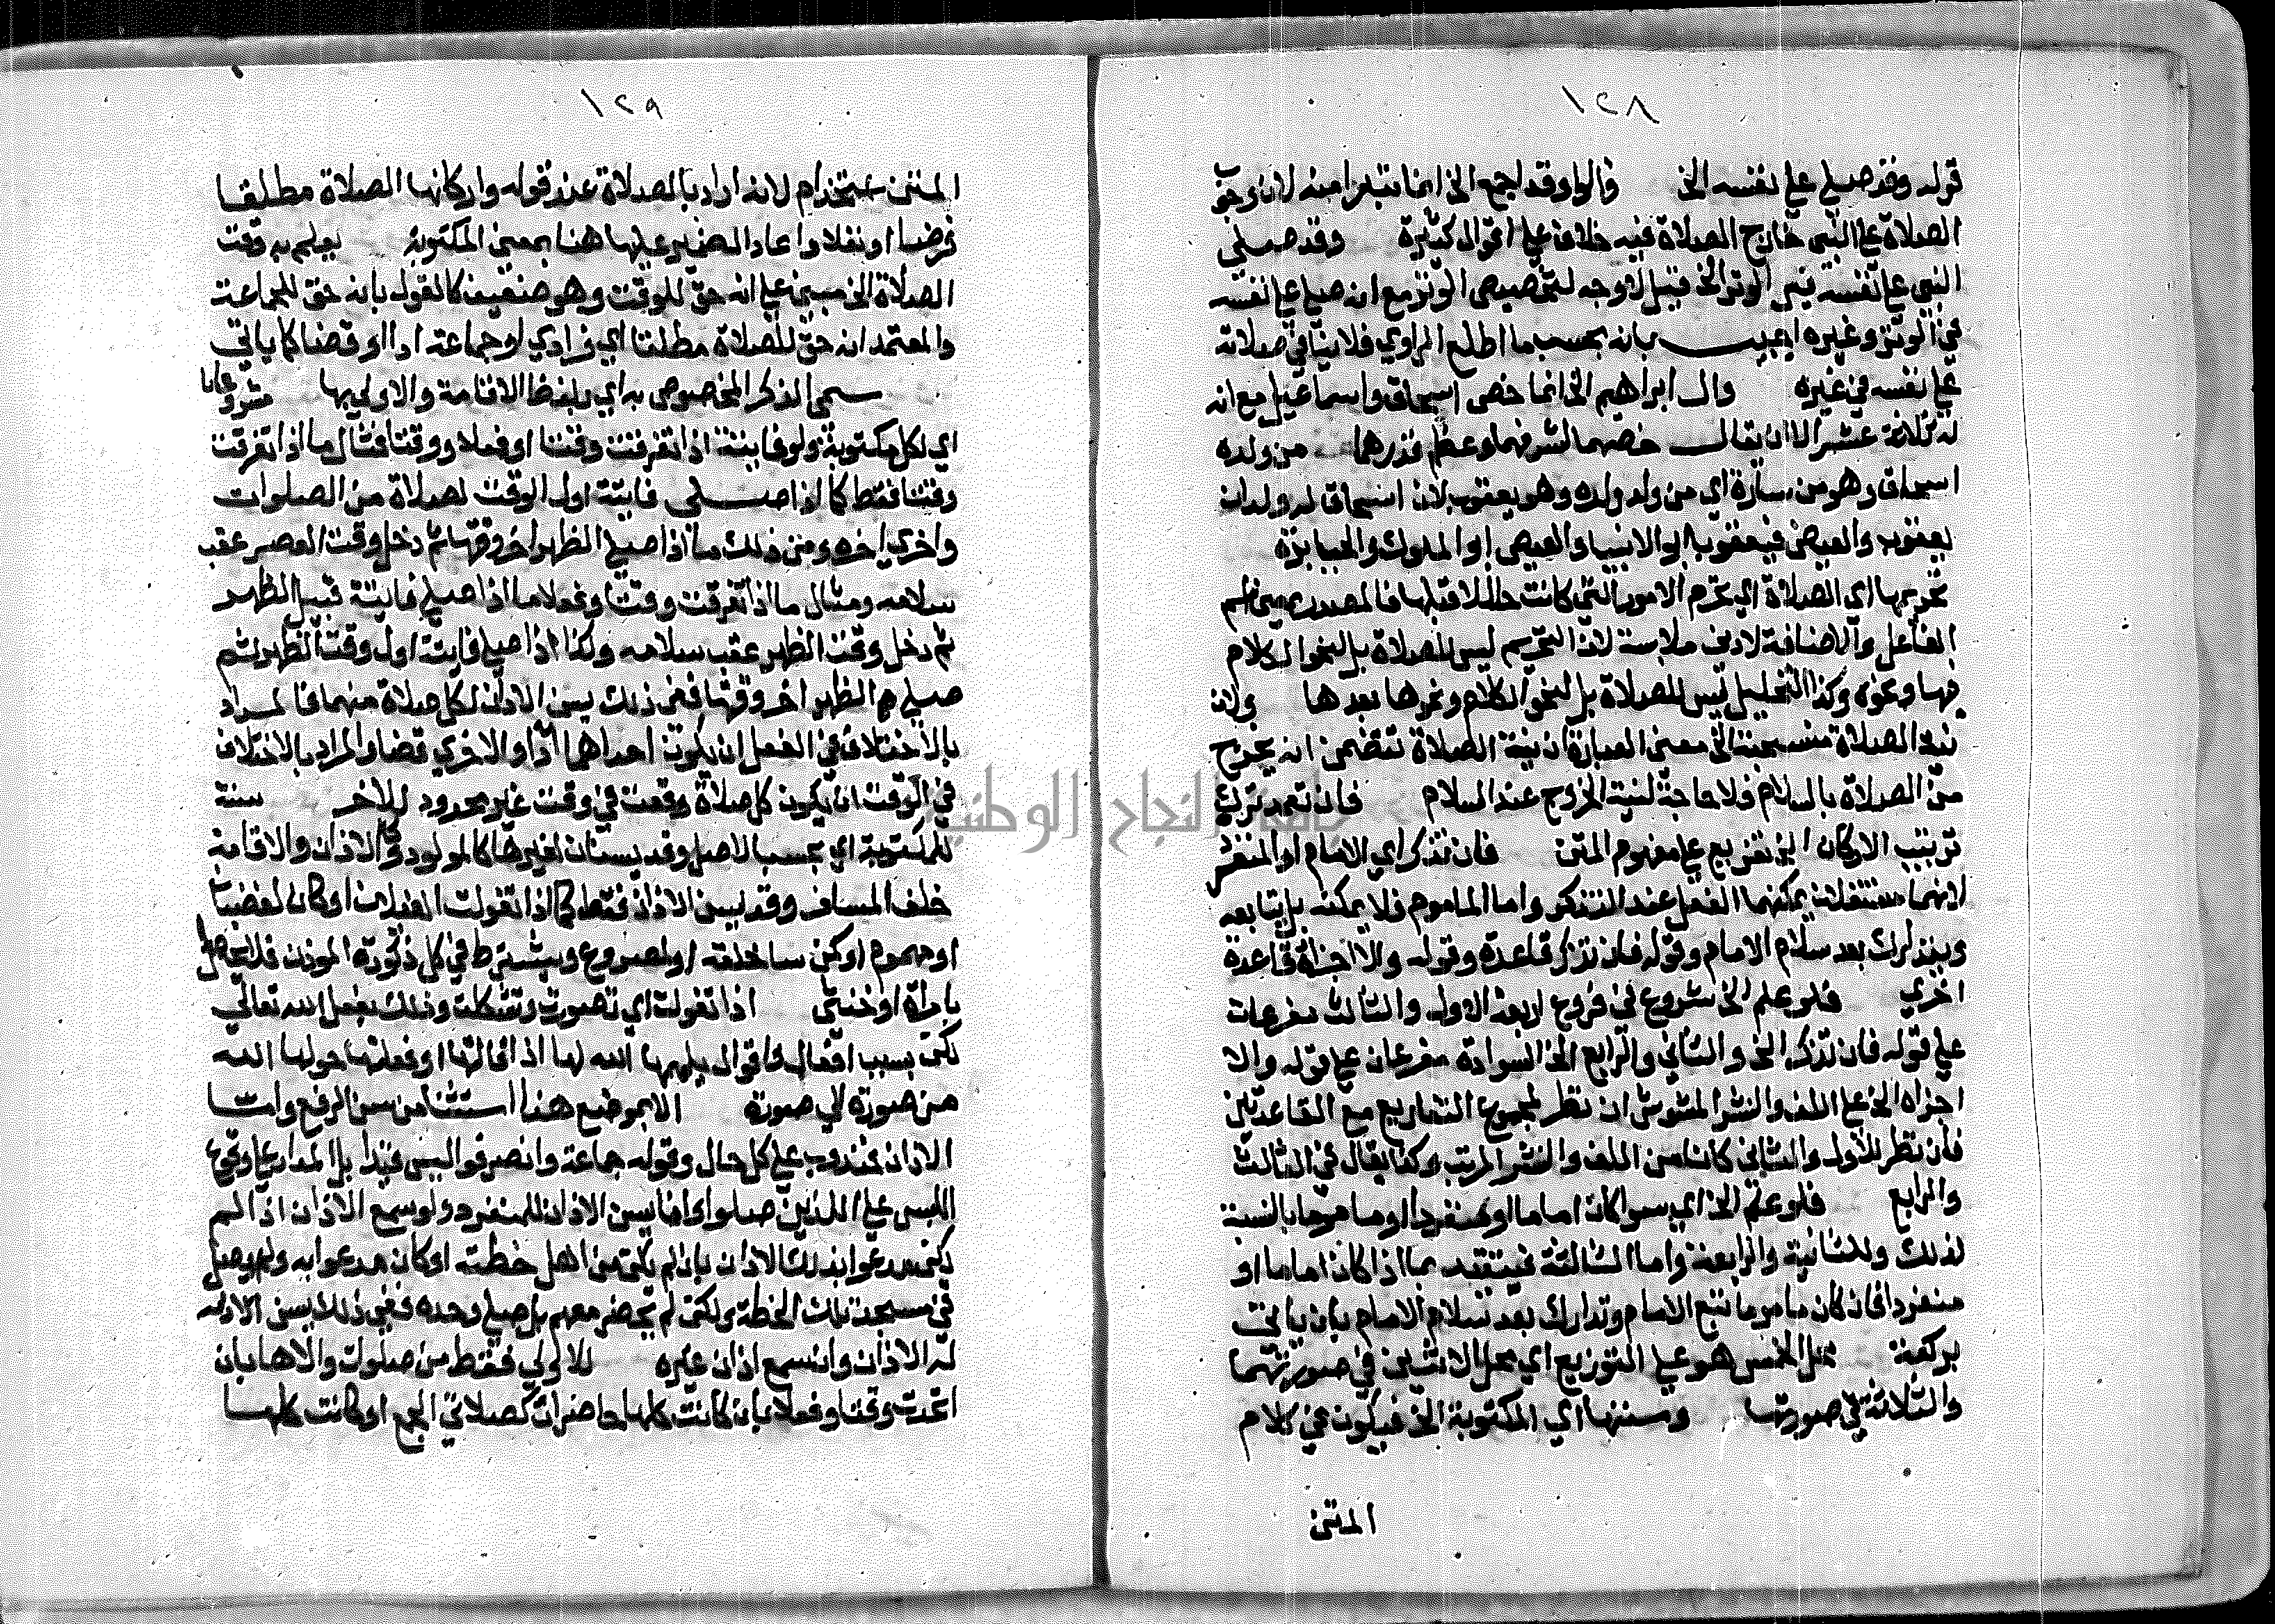 ١٢٨
قوله وقد صلي علي نفسه الخ قالوا وقد اجمع الخ انما تبرا منه لان وجوب
الصلاة علي النبي خارج الصلاة فيه خلاف علي اقوال كثيرة وقد صلي
النبي علي نفسه في الوتر الخ قيل لا وجه لتخصيص الوتر مع انه صلي علي نفسه
في الوتر وغيره اجيب بانه بحسب ما اطلع الراوي فلا ينافي صلاته
علي نفسه في غيره وال ابراهيم الخ انما خص اسحاق واسماعيل مع ان
له ثلاثة عشر الا ان يقال خصهما لشرفهما وعظم قدرهما من ولده
اسحاق وهو من سارة اي من ولد ولده وهو يعقوب لان اسحاق له ولدان
يعقوب والعيص فيعقوب ابو الانبيا والعيص ابو الملوك والجبابرة
تحريمها اي الصلاة اي يحرم الامور التي كانت حلالا قبلها فالمصدر بمعني اسم
الفاعل والاضافة لادني ملابسة لان التحريم ليس للصلاة بل لنحو الكلام
فيها ونحوه وكذا التحليل ليس للصلاة بل لنحو الكلام ونحوها بعدها ولان
نية الصلاة منسحبة الخ معني العبارة ان نية الصلاة تتضمن انه يخرج
من الصلاة بالسلام فلا حاجة لنية الخروج عند السلام فان تعمد ترك
ترتيب الاركان الخ تفريع علي مفهوم المتن فان تذكر اي الامام او المنفرد
لانهما مستقلان يمكنهما الفعل عند التذكر واما الماموم فلا يمكنه بل يتابعه
ويتدارك بعد سلام الامام وقوله فان تذكر قاعدة وقوله والا اجزاه قاعدة
اخري فلو علم الخ شروع في فروع اربعة الاول والثالث مفرعان
علي قوله فان تذكر الخ والثاني والرابع الخ السوادة مفرعان علي قوله والا
اجزاه الخ علي اللف والنشر المشوش ان نظر لمجموع التفاريع مع القاعدتين
فان نظر للاول والثاني كانا من اللف والنشر المرتب وكذا يقال في الثالث
والرابع فلو علم الخ اي سوا كان اماما او منفردا او ماموما بالنسبة
لذلك وللثانية والرابعة واما الثالثة فيتقيد بما اذا كان اماما او
منفردا فان كان ماموما تبع الامام وتدارك بعد سلام الامام بان ياتي
بركعة محل الخمس هو علي التوزيع اي محل الاثنين في صورتهما
والثلاثة في صورتها وسننها اي المكتوبة الخ فيكون في كلام
المتن
١٢٩
المتن استخدام لانه اراد بالصلاة عند قوله واركانها الصلاة مطلقا
فرضا او نفلا واعاد الضمير عليها هنا بمعني المكتوبة يعلم به وقت
الصلاة الخ مبني علي انه حق للوقت وهو ضعيف كالقول بانه حق للجماعة
والمعتمد انه حق للصلاة مطلقا اي فرادي او جماعة ادا او قضا كما ياتي
سمي الذكر المخصوص به اي بلفظ الاقامة والاولي بها مشروعان
اي لكل مكتوبة ولو فايتة اذا تفرقت وقتا او فعلا ووقتا فمثال ما اذا تفرقت
وقتا فقط كما اذا صلي فايتة اول الوقت لصلاة من الصلوات
واخري اخره ومن ذلك ما اذا صلي الظهر اخر وقتها ثم دخل وقت العصر عقب
سلامه ومثال ما اذا تفرقت وقتا وفعلا ما اذا صلي فايتة قبيل الظهر
ثم دخل وقت الظهر عقب سلامه وكذا اذا صلي فايتة اول وقت الظهر ثم
صلي الظهر اخر وقتها ففي ذلك يسن الاذان لكل صلاة منهما فالمراد
بالاختلاف في الفعل ان يكون احداها ادا والاخري قضا والمراد بالاختلاف
في الوقت ان يكون كل صلاة وقعت في وقت غير محدود للاخر سنة
للمكتوبة اي بحسب الاصل وقد يسنان لغيرها كالمولود وكالاذان والاقامة
خلف المسافر وقد يسن الاذان فقط كما اذا تغولت الغيلان او كان لغضبان
او مهموم او لمن ساء خلقه او لمصروع ويشترط في كل ذكورة الموذن فلا يحصل
بامراة او خنثي اذا تغولت اي تصورت وتشكلت وذلك بفعل الله تعالي
لكن بسبب افعال واقوال يلهمها الله لها اذا قالتها او فعلتها حولها الله
من صورة الي صورة الا بموضع هذا استثنا من سن الرفع واما
الاذان فمندوب علي كل حال وقوله جماعة وانصرفوا ليس قيدا بل المدار علي وقوع
اللبس علي الذين صلوا اي انما يسن الاذان للمنفرد ولو سمع الاذان اذا لم
يكن مدعوا بذلك الاذان بان لم يكن من اهل خطته او كان مدعوا به ولم يصل
في مسجد تلك الخطة ولكن لم يحضر معهم بل صلي وحده ففي ذلك يسن الاذان
له الاذان وان سمع اذان غيره للاولي فقط من صلوات والاها بان
اتحدت وقتا وفعلا بان كانت كلها حاضرات كصلاتي الجمع او كانت كلها
جامعة النجاح الوطنية